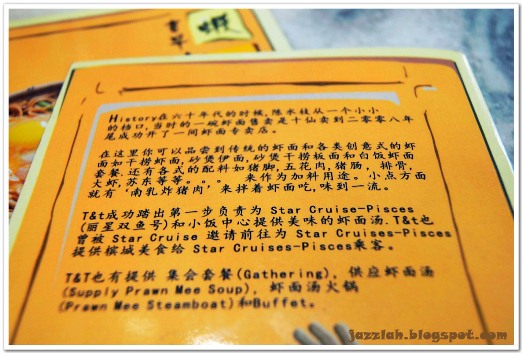 虾
History在六十年代的时候,陈水枝从一个小小
的档口,当时的一碗虾面售卖是十仙卖到二零零八年
尾成功开了一间虾面专卖店。
在这里你可以品尝到传统的虾面和各类创意式的虾
面如干捞虾面,砂煲伊面,砂煲干捞板面和白饭虾面
套餐,还有各式的配料如猪脚,五花肉,猪肠,排骨,
大虾,苏东等等。。。 来作为加料用途。小点方面
就有‘南乳炸猪肉’来拌着虾面吃,味到一流。
T&t成功踏出第一步负责为 Star Cruise-Pisces
(丽星双鱼号)和小饭中心提供美味的虾面汤.T&t也
曾被 Star Cruise 邀请前往为 Star Cruises-Pisces
提供槟城美食给 Star Cruises-Pisces乘客。
T&T也有提供 集会套餐(Gathering), 供应虾面汤
(Supply Prawn Mee Soup), 虾面汤火锅
(Prawn Mee Steamboat)和Buffet。
jazzlah.blogspot.com